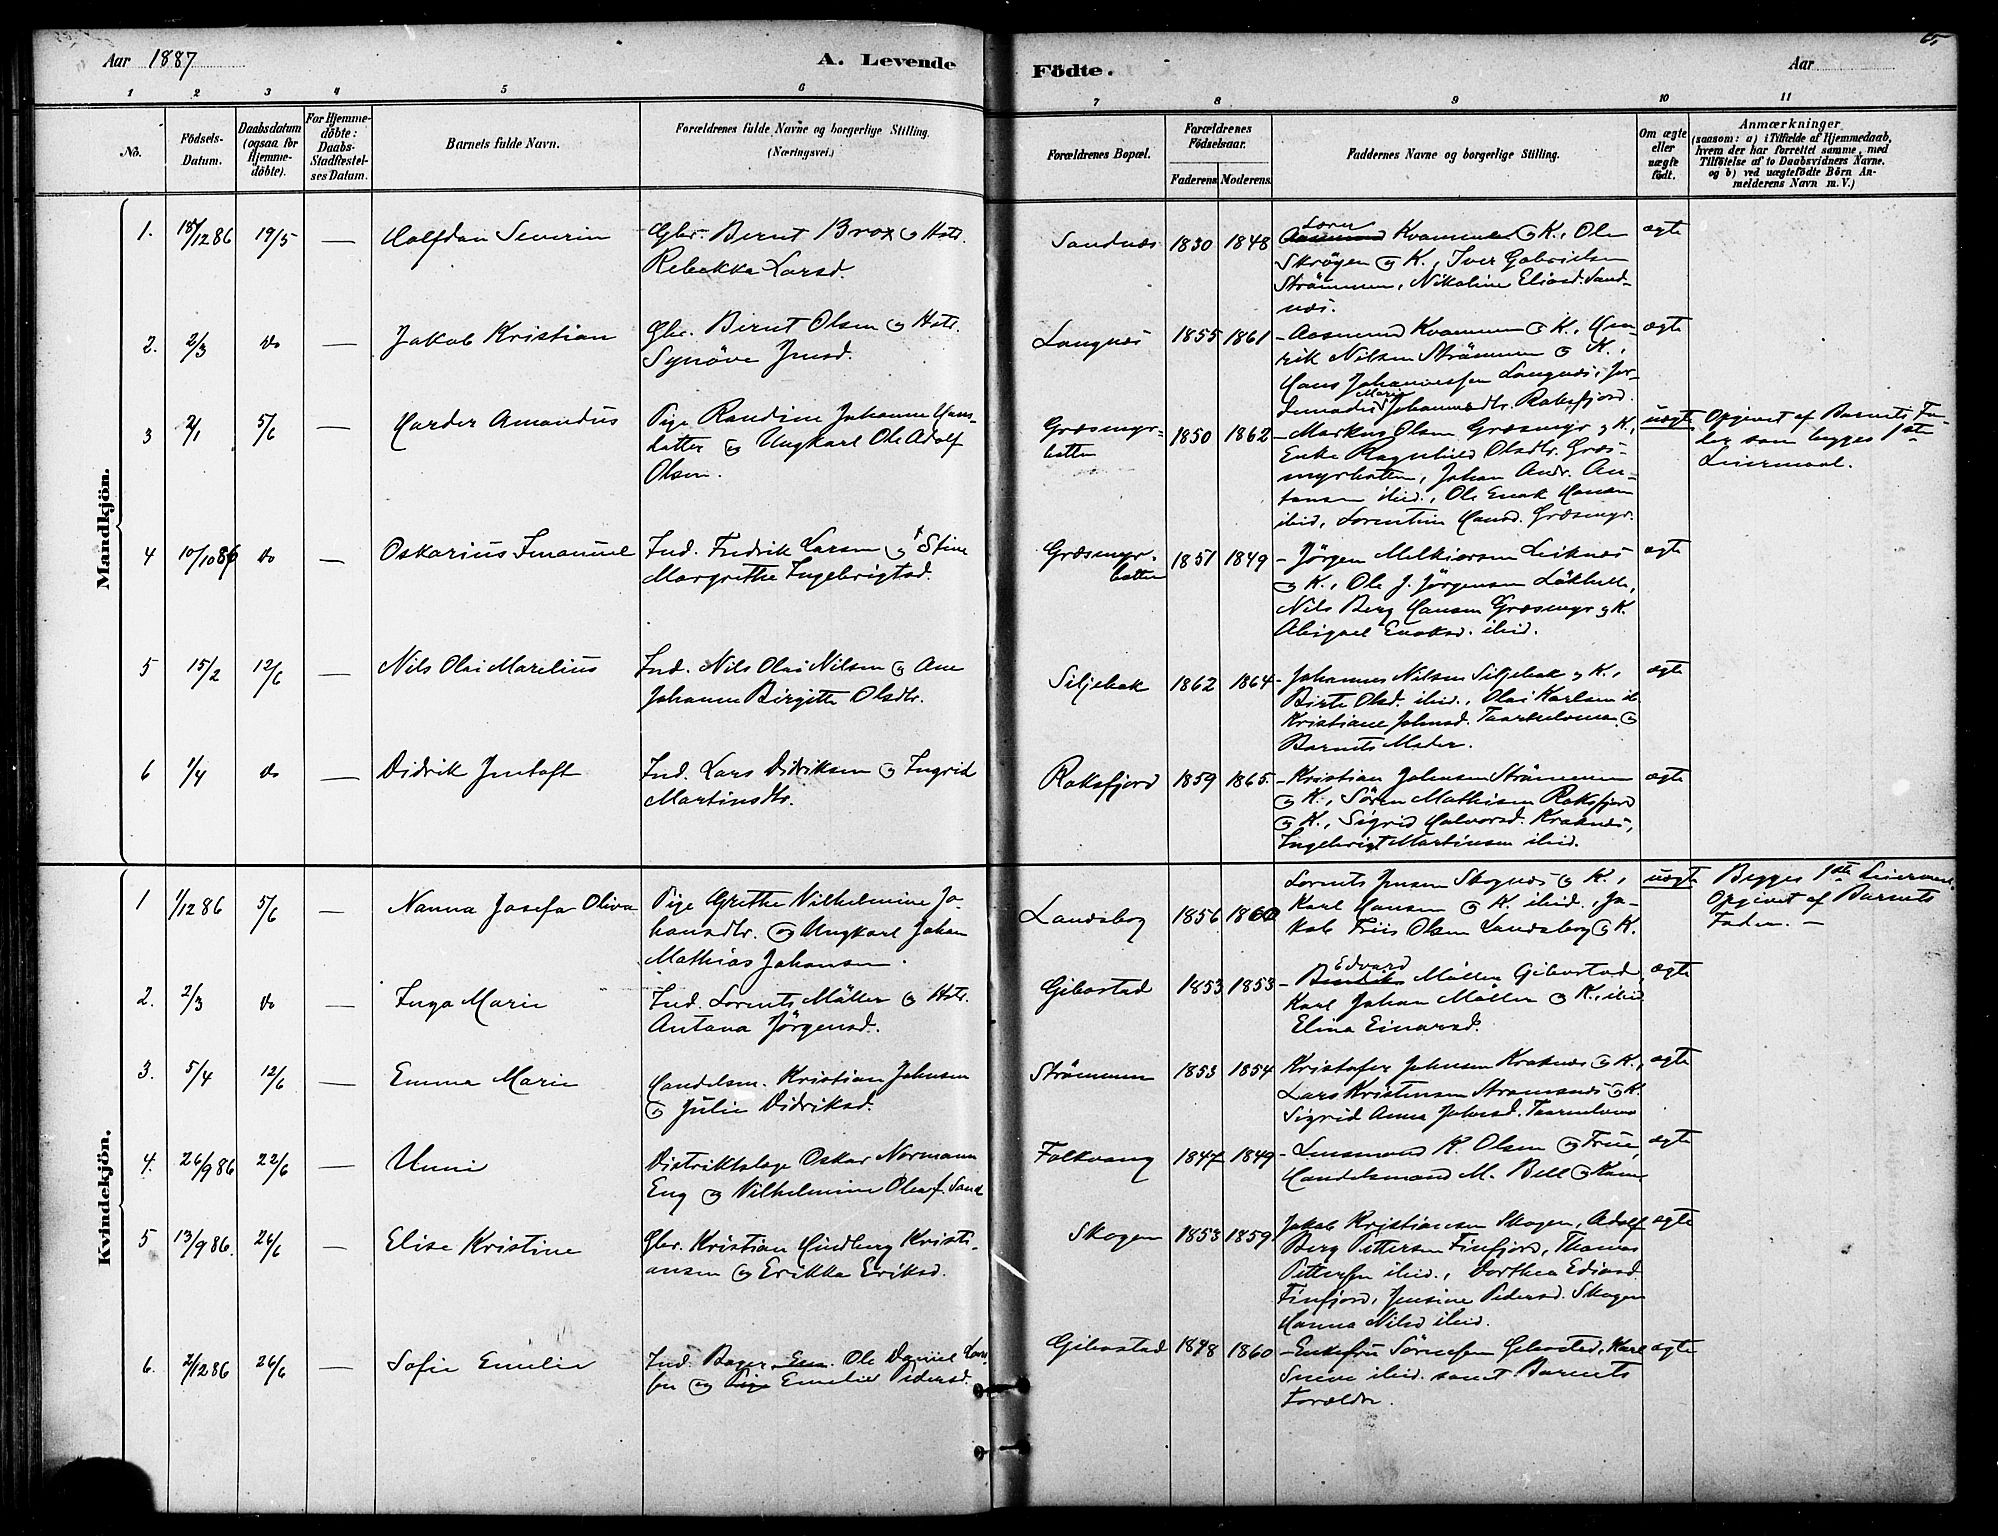 Aar 1887
A. Levende
Födte.
Aar
1 2 3 4 5 6 7 8 9 10 11
No.
Födsels-
Datum.
Daabsdatum
(ogsaa for
Hjemme-
döbte).
For Hjemme-
döbte:
Daabs-
Stadfæstel-
ses Datum.
Barnets fulde Navn.
Forældrenes fulde Navne og borgerlige Stilling.
(Næringsvei.)
Forældrenes Bopæl.
Forældrenes
Födselsaar.
Faderens Moderens
Faddernes Navne og borgerlige Stilling.
Om ægte
eller
uægte
födt.
Anmærkninger
(saasom: a) i Tilfælde af Hjemmedaab,
hvem der har forrettet samme, med
Tilföielse af to Daabsvidners Navne,
og b) ved uægtefödte Börn An-
melderens Navn m. V.)
Mandkjön.
1. 18/12 86 19/5 — Halfdan Severin
Gbr. Bernt Brox og Hstr.
Rebekka Larsd.
Sandnes 1830 1848
Kvammen og K., Ole
Skrögen og K., Iver Gabrielsen
Strömmen, Nikoline Eliasd. Sand-
nes.
ægte
2. 2/3 do — Jakob Kristian
Gbr. Bernt Olsen og Hstr.
Synöve Jensd.
Langnes 1855 1861
Aasmund Kvammen og K., Hen-
rik Nilsen Strömmen og K.,
Hans Johannessen Langnes,
Marie
Johannesdtr. Roksfjord.
ægte
3 2/1 5/6 — Harder Amandus
Pige Randine Johanne Hans-
datter og Ungkarl Ole Adolf
Olsen.
Græsmyr-
botten 1850 1862
Markus Olsen Græsmyr og K.,
Enke Ragnhild Olsdtr. Græs-
myrbotten, Johan Andr. An-
tonsen ibid., Ole Enok Hansen
ibid, Lorentine Hansd. Græsmyr.
uægte
Opgivet af Barnets Fa-
der som begges 1ste
Leiermaal.
4 10/10 86 do — Oskarius Imanuel
Ind. Fredrik Larsen og Stine
Margrethe Ingebrigtsd.
Græsmyr-
botten 1851 1849
Jörgen Melkiorsen Leiknes
og K., Ole J. Jörgensen Lökhelle,
Nils Berg Hansen Græsmyr og K.
Abigael Enoksd. ibid.
ægte
5 15/2 12/6 — Nils Olai Marelius
Ind. Nils Olai Nilsen og Ane
Johanne Birgitte Olsdtr.
Siljebak 1862 1864
Johannes Nilsen Siljebak og K.,
Birte Olsd. ibid., Olai Karlsen ib.
Kristiane Johnsd. og
Barnets Moder.
ægte
6 1/4 do — Didrik Jentoft
Ind. Lars Didriksen og Ingrid
Martinsdtr.
Roksfjord 1859 1865.
Kristian Johnsen Strömmen
og K., Sören Mathisen Roksfjord
og K., Sigrid Halvorsd. Kraknes,
Ingebrigt Martinsen ibid.
ægte
Kvindekjön.
1 1/12 86 5/6 — Nanna Josefa Oliva
Pige Grethe Vilhelmine Jo-
hansdtr. og Ungkarl Johan
Mathias Johansen.
Landsberg 1856 1860
Lorents Jensen Skognes og K.,
Karl Hansen og K. ibid., Ja-
kob Friis Olsen Landsberg og K.
uægte
Begges 1ste Leiermaal.
Opgivet af Barnets
Fader. —
2. 2/3 do — Inga Marie
Ind. Lorents Möller og Hstr.
Antona Jörgensd.
Gibostad 1853 1853
Edvard
Möller Gibostad,
Karl Johan Möller og K., ibid
Elina Einarsd.
ægte
3. 5/4 12/6 — Emma Marie
Handelsm. Kristian Johnsen
og Julie Didriksd.
Strömmen 1853 1854
Kristofer Johnsen Kraknes og K.,
Lars Kristensen Stramsnes og K.
Sigrid Anna Johnsd.
ægte
4. 26/9 86 22/6 — Unni
Distriktslæge Oskar Normann
Eng og Vilhelmine Olea f. Sand
Folkvang 1847 1849
Lensmand K. Olsen og Frue,
Handelsmand M. Bell og Kone
ægte
5 13/9 86. 26/6 — Elise Kristine
Gbr. Kristian Hindberg Kristi-
ansen og Erikka Eriksd.
Skogen 1853 1859
Jakob Kristiansen Skogen, Adolf
Berg Pettersen Finfjord, Thomas
Pettersen ibid., Dorthea Edvardsd.
Finfjord, Jensine Pedersd. Skogen
Hanna Nilsd ibid.
ægte
6. 2/12 86 26/6 — Sofie Emelie
Ind. Bager Ole Daniel Lars-
sen og Pige Emelie Pedersd.
Gibostad 1848 1860
Enkefru Sörensen Gibostad, Karl
Sneve ibid. samt Barnets
Forældre.
ægte